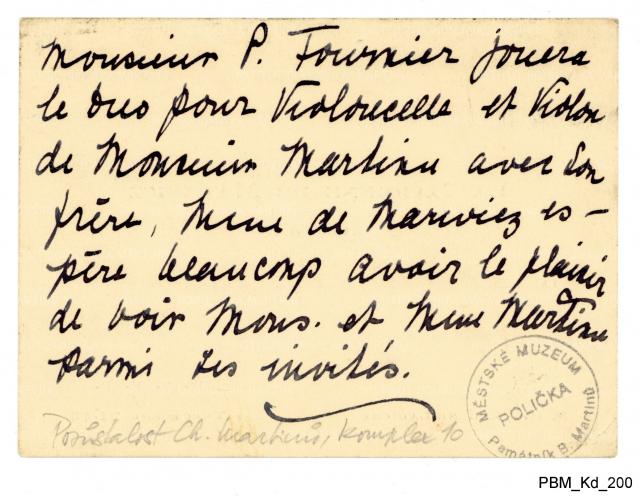 Monsieur P. Fournier jouera
le Duo pour Violoncelle et Violon
de Monsieur Martinu avec Son
frère, Mme de Marwiez es-
père beaucoup avoir le plaisir
de voir Mons. et Mme Martinu
parmi ses invités.
Pozůstalost Ch. Martinů, komplex 10
MĚSTSKÉ MUZEUM
POLIČKA
Památník B. Martinů
PBM_Kd_200